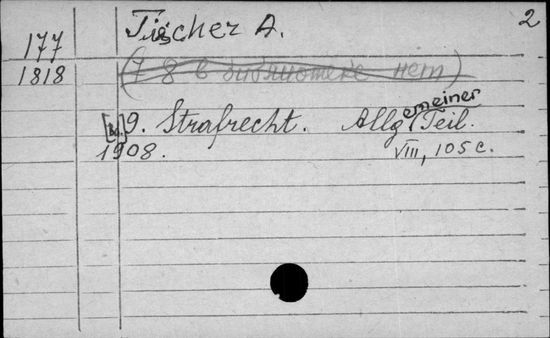 2
177
1818
Fischer A.
(7 8 в библиотеке нет)
[Bd.] 9. Strafrecht. Allgemeiner Teil.
1908. VIII, 105 с.